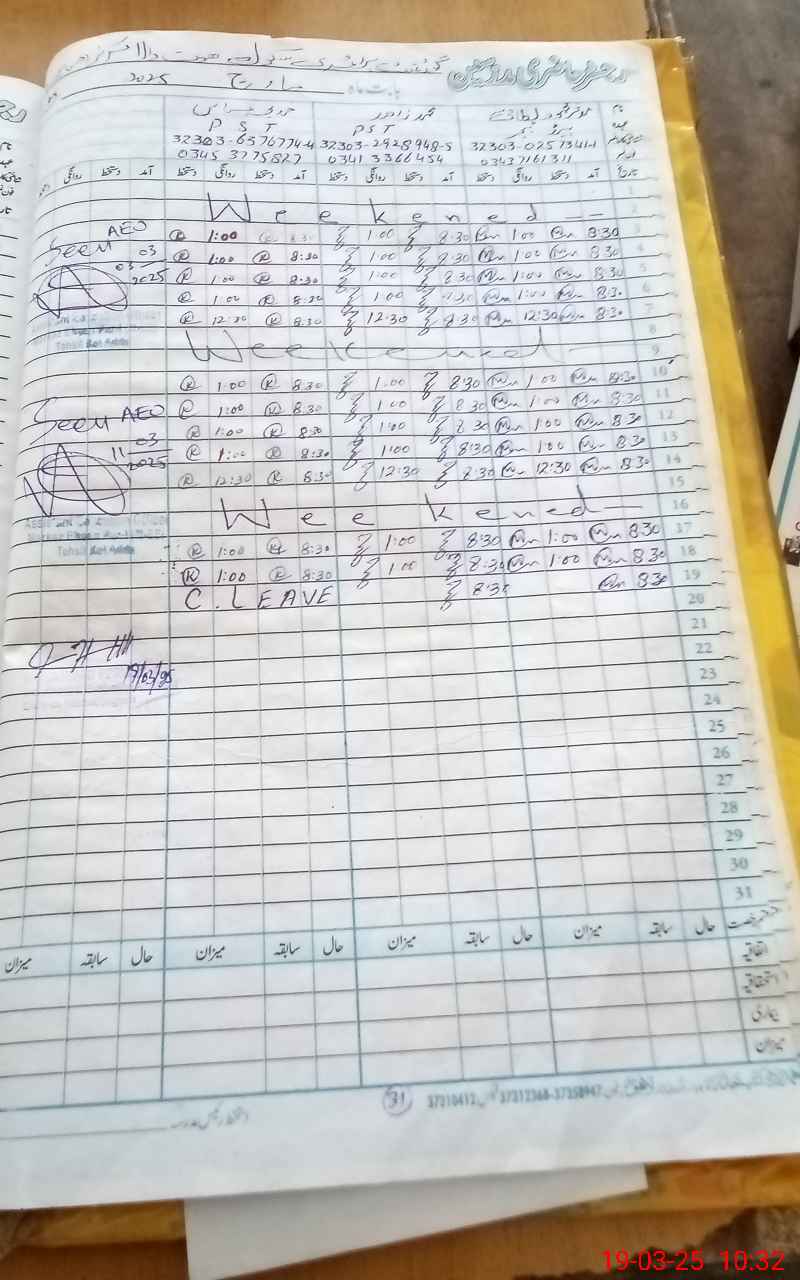 رجسٹر حاضری مدرسین
بابت ماہ مارچ 2025
نام محمد زاہد
عہدہ P S T PST
32303-0257341-1 32303-2928948-5 32303-6576774-4
03437161311 0341 3366454 0345 3775827
تاریخ آمد دستخط روانگی دستخط آمد دستخط روانگی دستخط آمد دستخط روانگی دستخط
1
2 Weekened
3 8:30 1:00 8:30 1:00 8:30 1:00
4 8:30 1:00 8:30 1:00 8:30 1:00
5 8:30 1:00 8:30 1:00 8:30 1:00
6 8:30 1:00 8:30 1:00 8:30 1:00
7 8:30 12:30 8:30 12:30 8:30 12:30
Seen AEO
03
03
2025
8
9 Weekened
10 8:30 1:00 8:30 1:00 8:30 1:00
11 8:30 1:00 8:30 1:00 8:30 1:00
12 8:30 1:00 8:30 1:00 8:30 1:00
13 8:30 1:00 8:30 1:00 8:30 1:00
14 8:30 12:30 8:30 12:30 8:30 12:30
Seen AEO
11 03
2025
Tehsil Kot Addu
15
16 Weekened
17 8:30 1:00 8:30 1:00 8:30 1:00
18 8:30 1:00 8:30 1:00 8:30 1:00
19 8:30 8:30 C. LEAVE
20
21
22
19/03/25
23
24
25
26
27
28
29
30
31
رخصت حال سابقہ میزان حال سابقہ میزان حال سابقہ میزان حال سابقہ میزان
اتفاقیہ
استحقاقیہ
بیماری
میزان
31
37310412 37312368-37358947
19-03-25 10:32